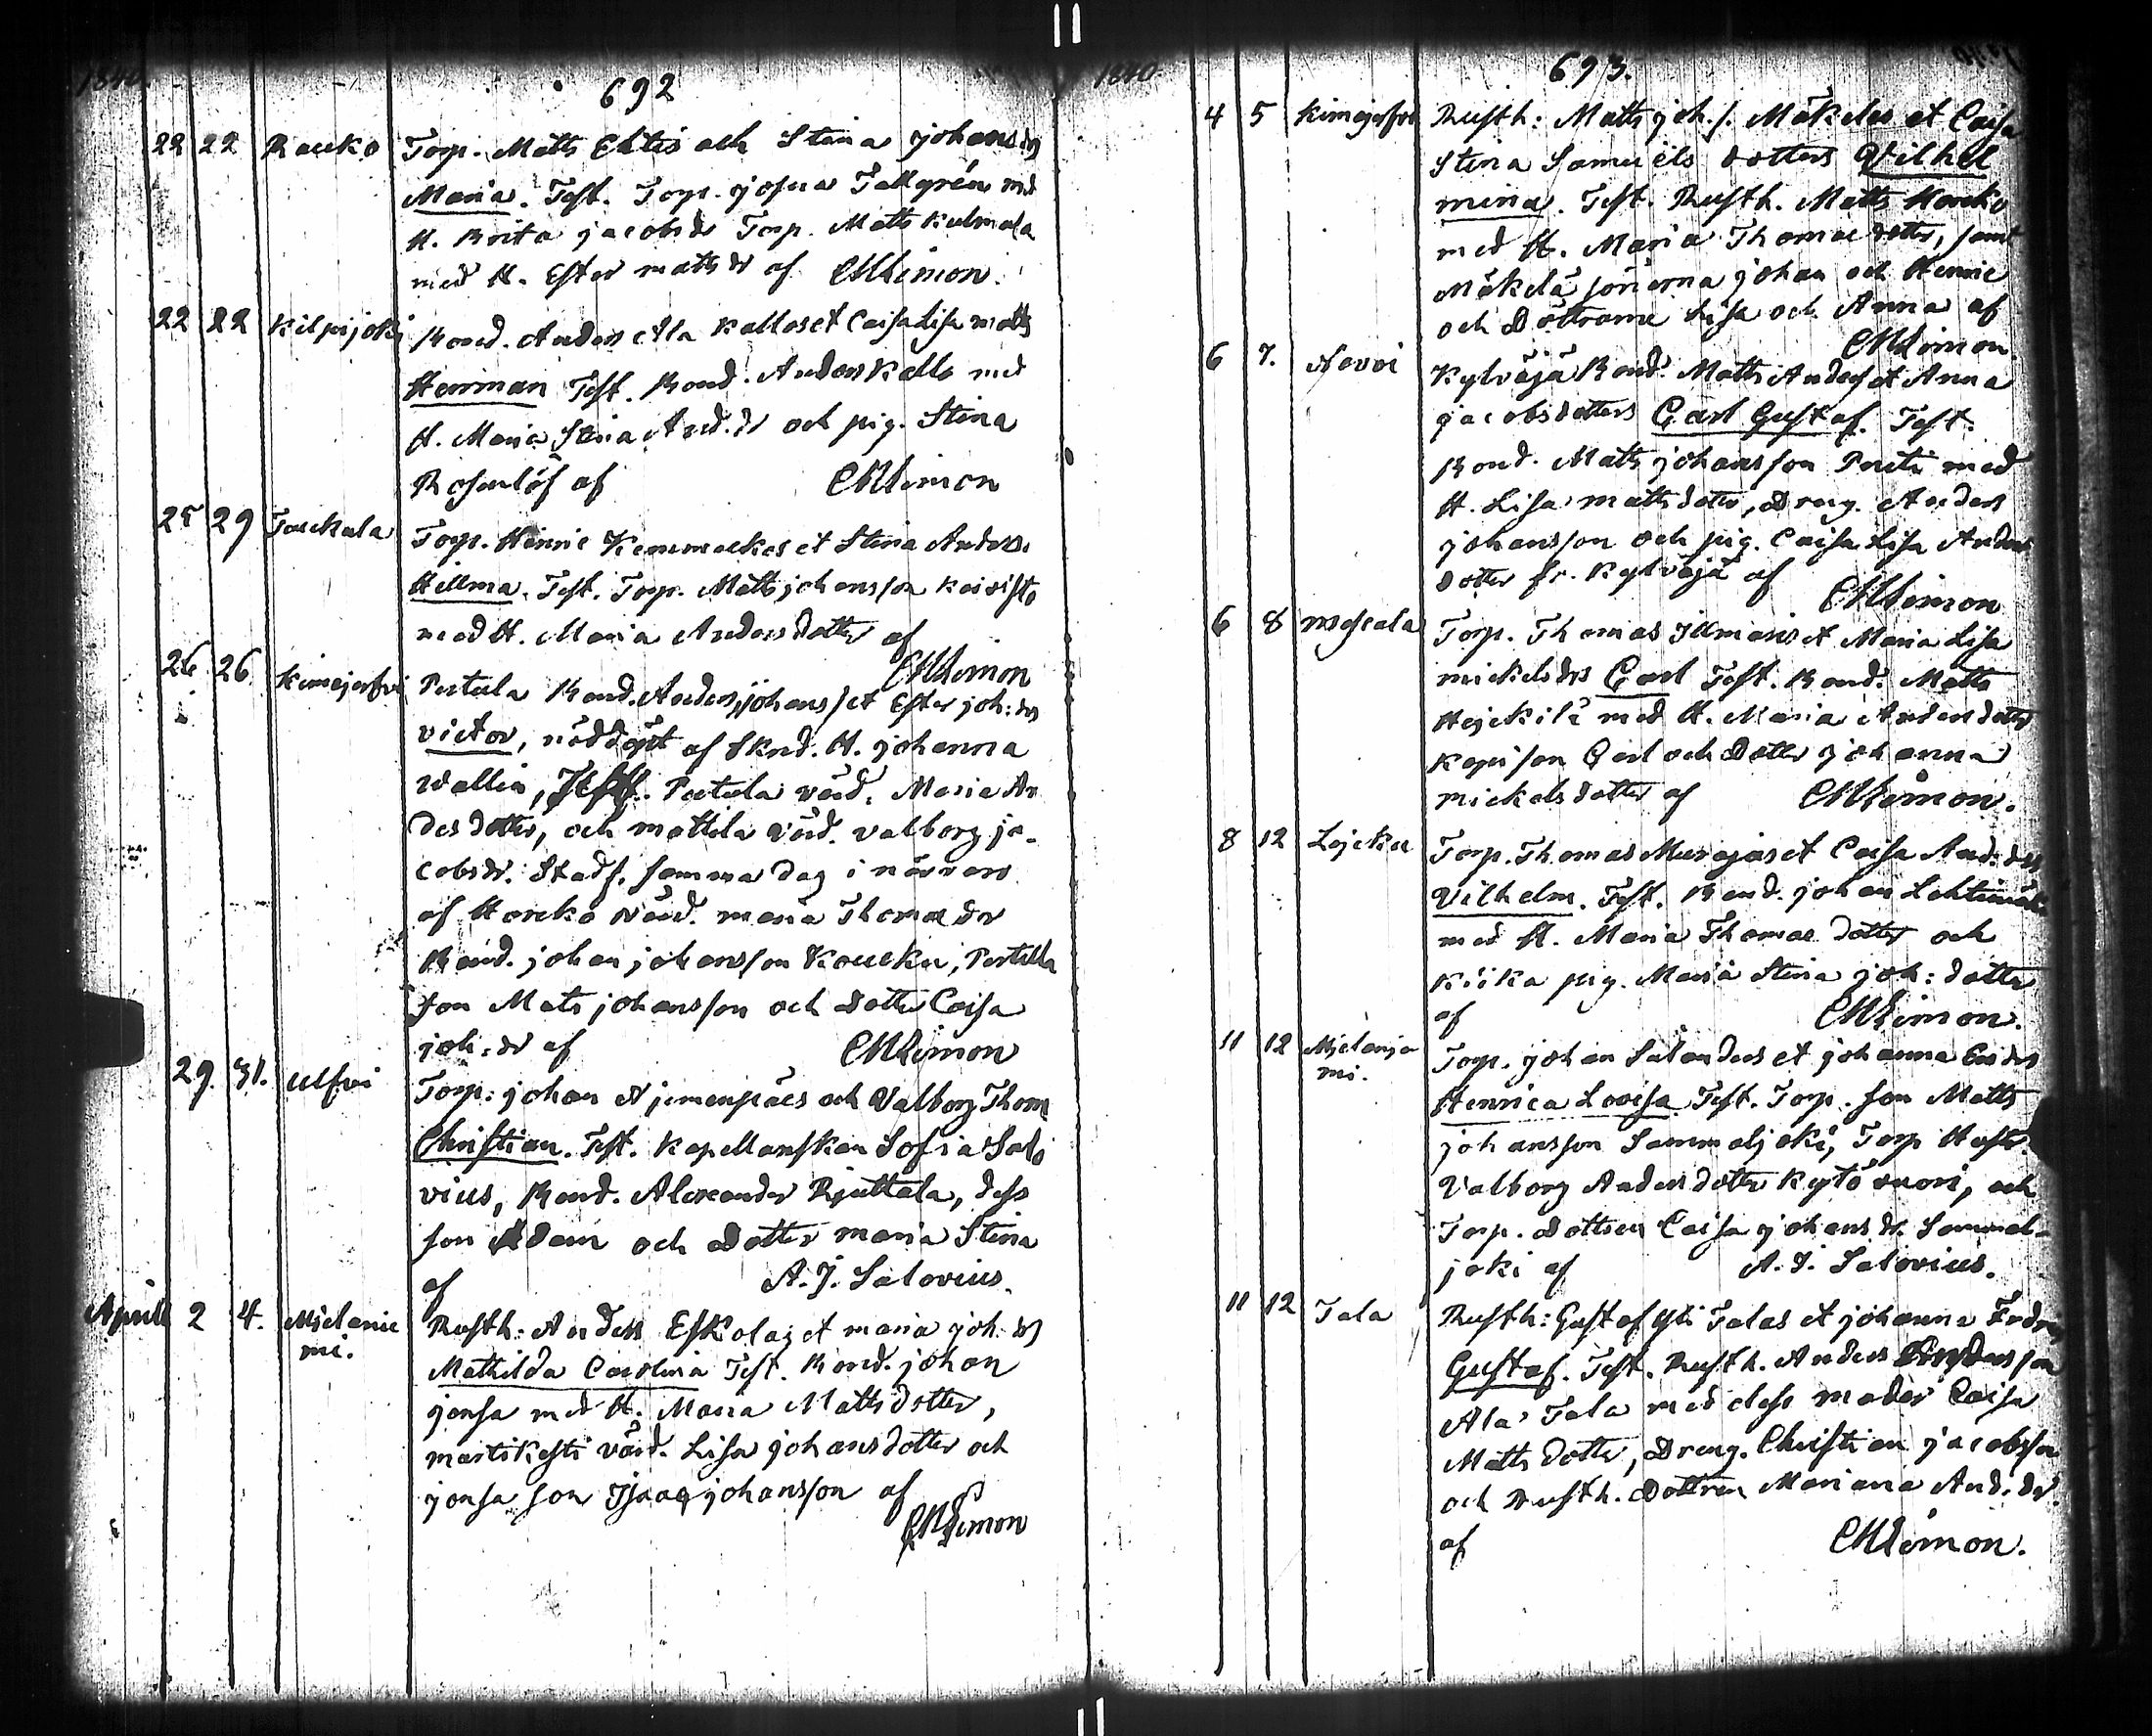 1840.
692
22 22 Rauko Torp. Matts Ehtis och Stina johansdrs
Maria. Test. Torp. josua Tallgrén md
H. Brita jacobsdr Torp. Matts Kulmala
med H. Ester matts dr af CMLimon.
22 22 Kilpijoki Bond. Anders Ala Kallas et Caisa Lisa matts
Herman Test. Bond. Anders Kallo med
H. Maria Stina And. dr och pig. Stina
Rosenlöf af CMLimon
25 29 Torp. Henric et Stina Anders.
Hillma. Test. Torp. Matts johansson Koivisto
med H. Maria Andersdotter af
CMLimon
26 26 Kimejerfvi Pertula Bond. Anders johans s et Ester joh: drs
victor, nöddöpt af Sknd. H. johanna
Wallin, Test. Pertula värd. Maria An
dersdotter, och mattila värd. valborg ja-
cobsdr. Stadf. samma dag i närvaro
af Horcko värd. maria Thomæ dr
Bond. johan johansson Koucku, Pertula
son Mats johansson och dotter Caisa
joh: dr af CMLimon
29. 31. Ulfvi Torp: johan Äjmenpääs och Valborg Thom
Christian. Test. Kapellanskan Sofia Salo
vius, Bond. Alexander Rjuttala, dess
son Adam och dotter maria Stina
af A. J. Salovius.
Aprill 2 4. Mjelanie Rusth: Anders Eskolas et maria joh: drs
mi. Mathilda Carolina Test. Bond. johan
jonsa med H. Maria Mattsdotter,
martikesti värd. Lisa johansdotter och
jonsa son Isaac johansson af
CMLimon
1840.
693.
4 5 Kimejerfvi Rusth: Matts joh. s. Mäkeläs et Caisa
Stina Samuels dotters Vilhel
mina. Test. Rusth. Matts Horcko
med H. Maria Thomæ dotter, samt
Mäkelä sönerna johan och Henric
och Döttrarne Lisa och Anna af
CMLimon.
6 7. Nevoi Kylväjä Bond. Matts Anders et Anna
jacobsdotters Carl Gustaf. Test.
Bond. Matts johansson Perti med
H. Lisa mattsdotter, Dreng. Anders
johansson och pig. Caisa Lisa Anders
dotter fr. Kylväjä af
CMLimon
6 8 Torp. Thomas Illmaris et Maria Lisa
mickelsdrs Carl Test. Bond. Matts
Hejckilä med H. Maria Andersdotter
Kopi son Carl och Dotter johanna
mickelsdotter af CMLimon.
8 12 Lojcku Torp. Thomas Murajas et Caisa And: drs
Vilhelm. Test. Bond. johan Lehtimäki
med H. Maria Thomæ dotter och
Kiika pig. Maria Stina joh: dotter
af CMLimon.
11 12 Mjelanja Torp. johan Salanders et johanna
mi. Henrica Lovisa Test. Torp. son Matts
johansson Sammaljoki, Torp. Hustr.
Valborg Andersdotter Kytövuori, och
Torp. dottren Caisa johans dr. Sammal-
joki af A. J. Salovius.
11 12 Tala Rusth: Gustaf Yli Talas et johanna Fredrs
Gustaf. Test. Rusth. Anders Andersson
Ala Tala med dess moder Caisa
Mattsdotter, Dreng. Christian jacobsson
och Rusth. Dottren Mariana And. dr.
af CMLimon.